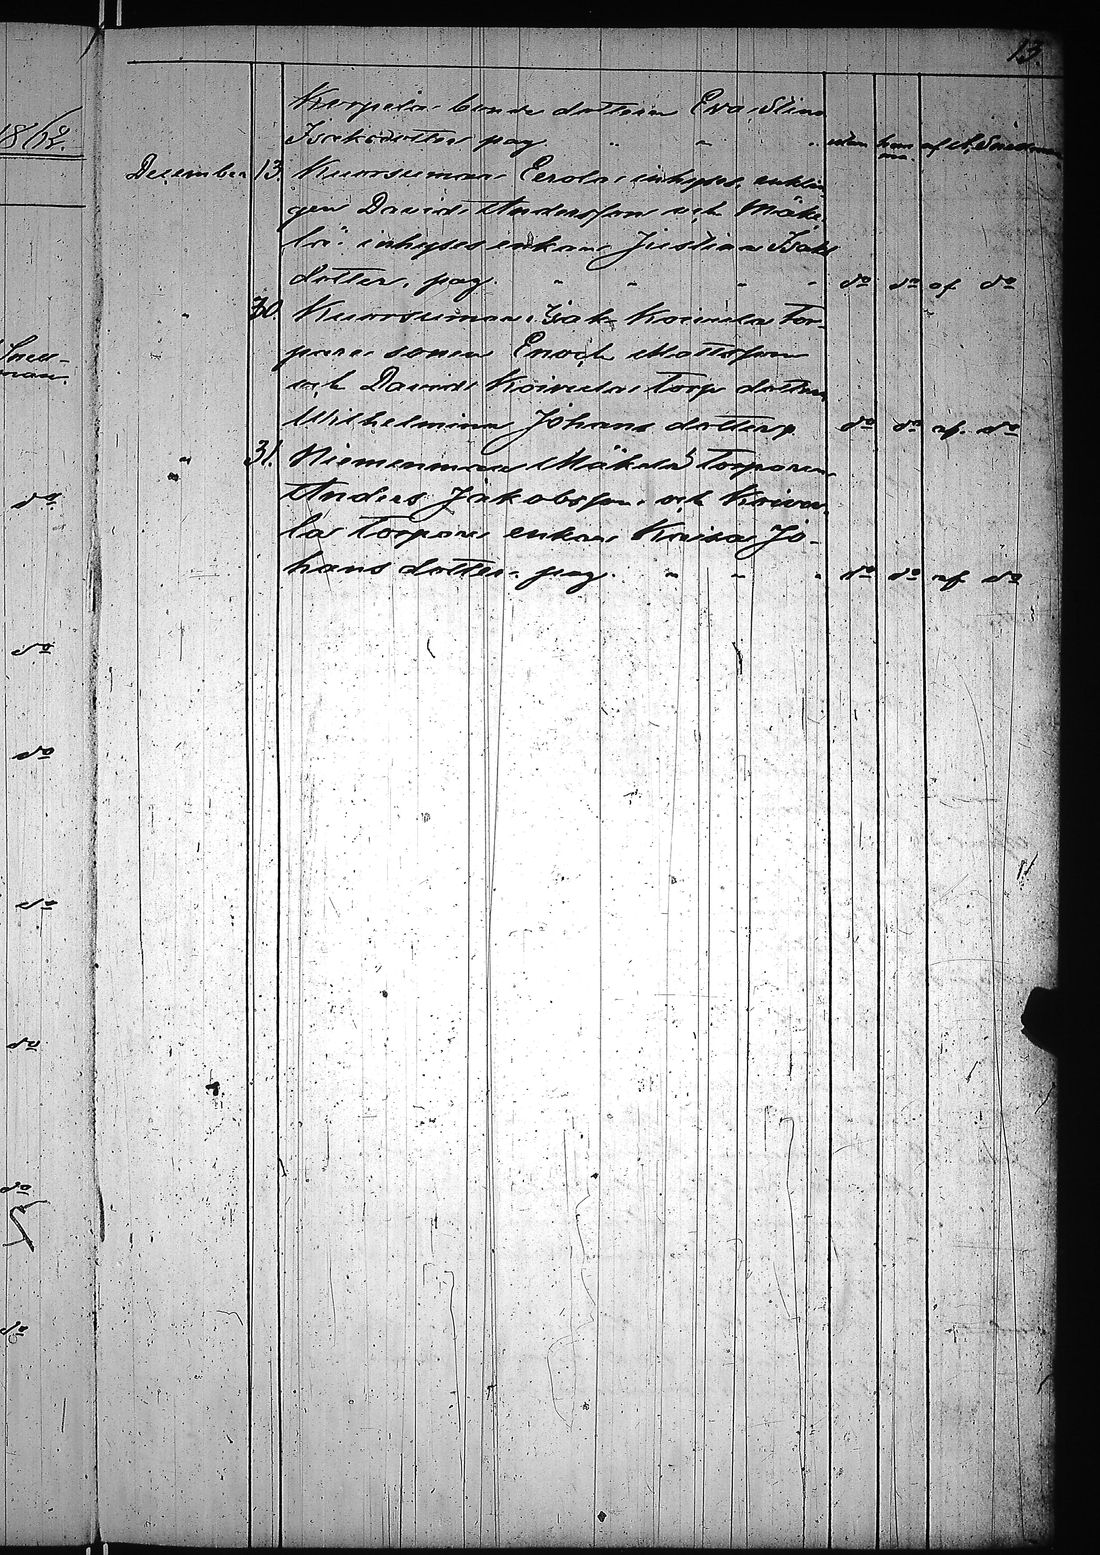 13.
1862.
Korpela bonde dottren Eva Stina
Isaksdotter, pag. " " " utan hem af A. Snellman
December 13. Kuorsumaa Eerola inhyses enklin-
gen David Andersson och Mäke-
lä inhyses enkan Justina Isaks
dotter, pag. " " " " do do af do
" 30. Kuorsumaa Isak Koivula Tor-
pare sonen Enoch Mattsson
och David Koivula Torp dottren
Wilhelmina Johans dotter p. do do af do
" 31. Niemenmaa Mäkelä Torparen
Anders Jakobsson och Koivu-
la Torpare enkan Kaisa Jo-
hans dotter, pag. " " " do do af do
Snell-
man.
do
do
do
do
do
do
do